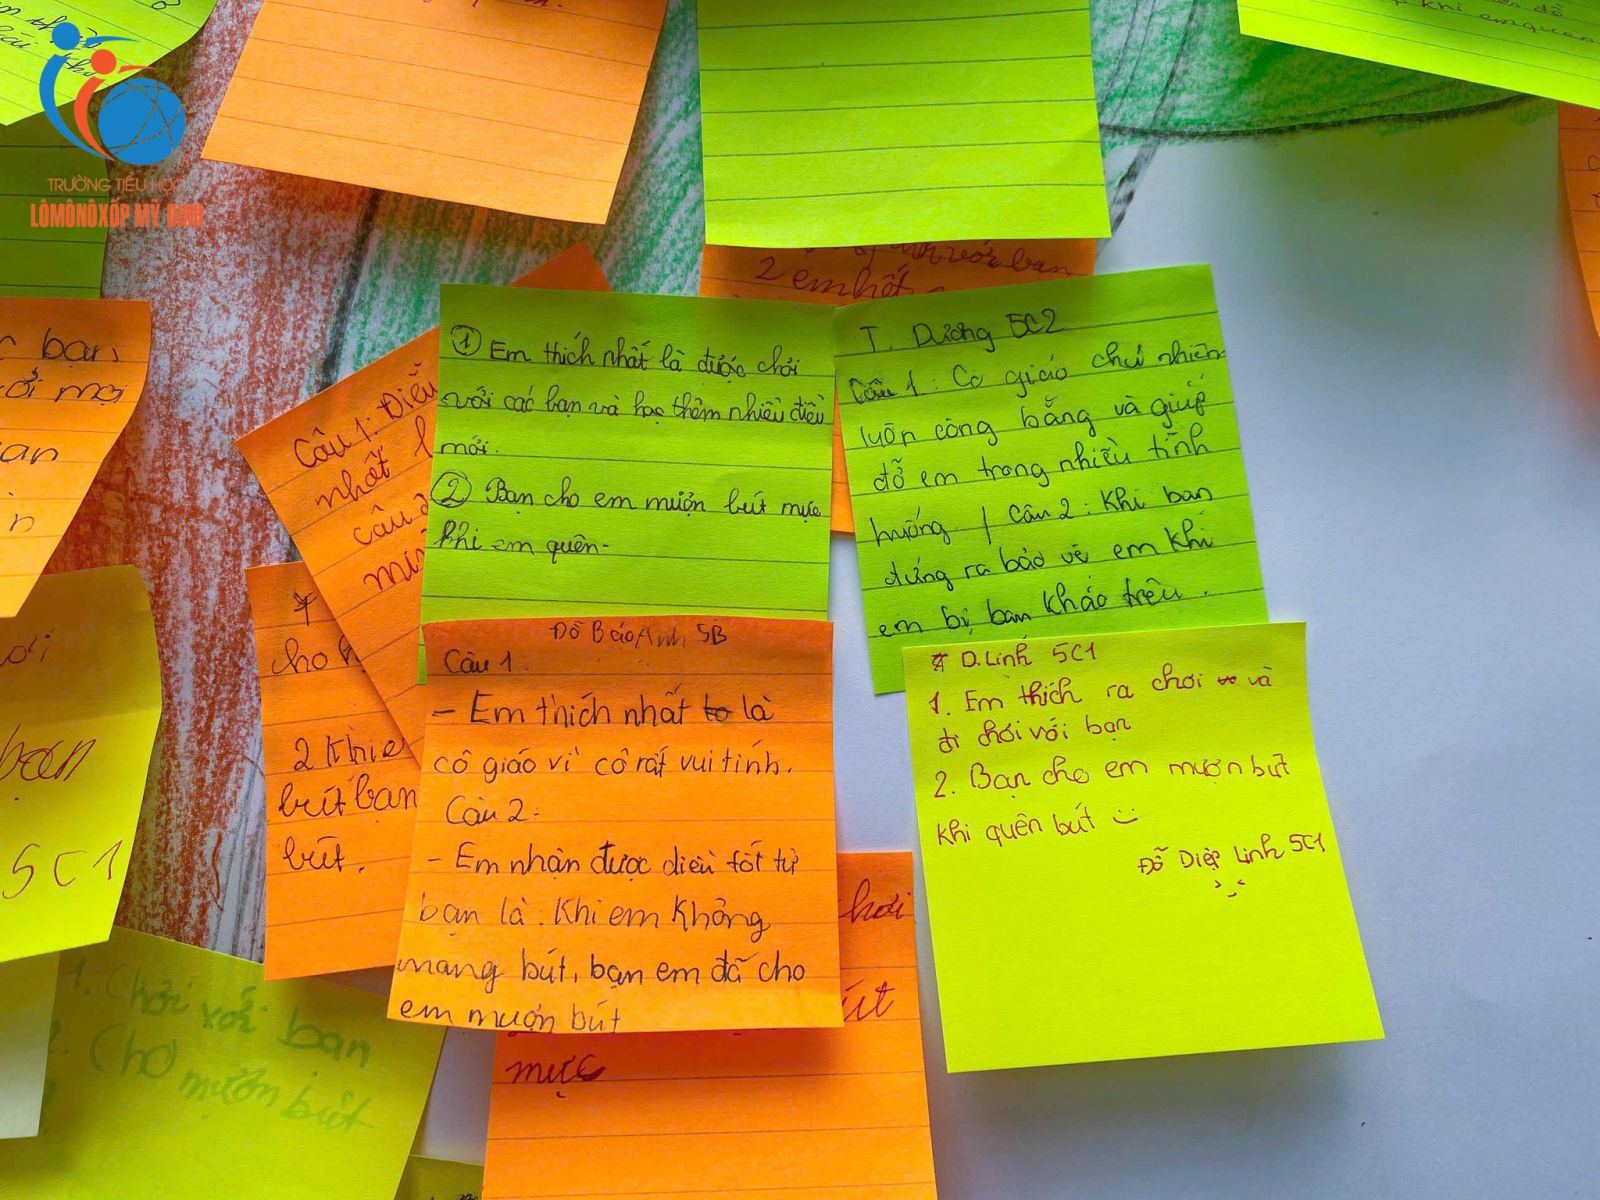 TRƯỜNG TIỂU HỌC
LÔMÔNÔXỐP MỸ ĐÌNH
2 em hất
① Em thích nhất là được chơi
với các bạn và học thêm nhiều điều
mới.
② Bạn cho em mượn bút mực
khi em quên.
T. Dương 5C2
Câu 1: Cô giáo chủ nhiệm
luôn công bằng và giúp
đỡ em trong nhiều tình
huống. / Câu 2: Khi bạn
đứng ra bảo vệ em khi
em bị bạn khác trêu.
Câu 1: Điều
nhất
câu
Đỗ Bảo Anh 5B
Câu 1.
- Em thích nhất là
cô giáo vì cô rất vui tính.
Câu 2:
- Em nhận được điều tốt từ
bạn là: Khi em không
mang bút, bạn em đã cho
em mượn bút
D. Linh 5C1
1. Em thích ra chơi và
đi chơi với bạn
2. Bạn cho em mượn bút
khi quên bút
Đỗ Diệp Linh 5C1
cho
2 Khi
bút bạn
bút.
bạn
5C1
1. Chơi với bạn
2. Cho mượn bút
mực